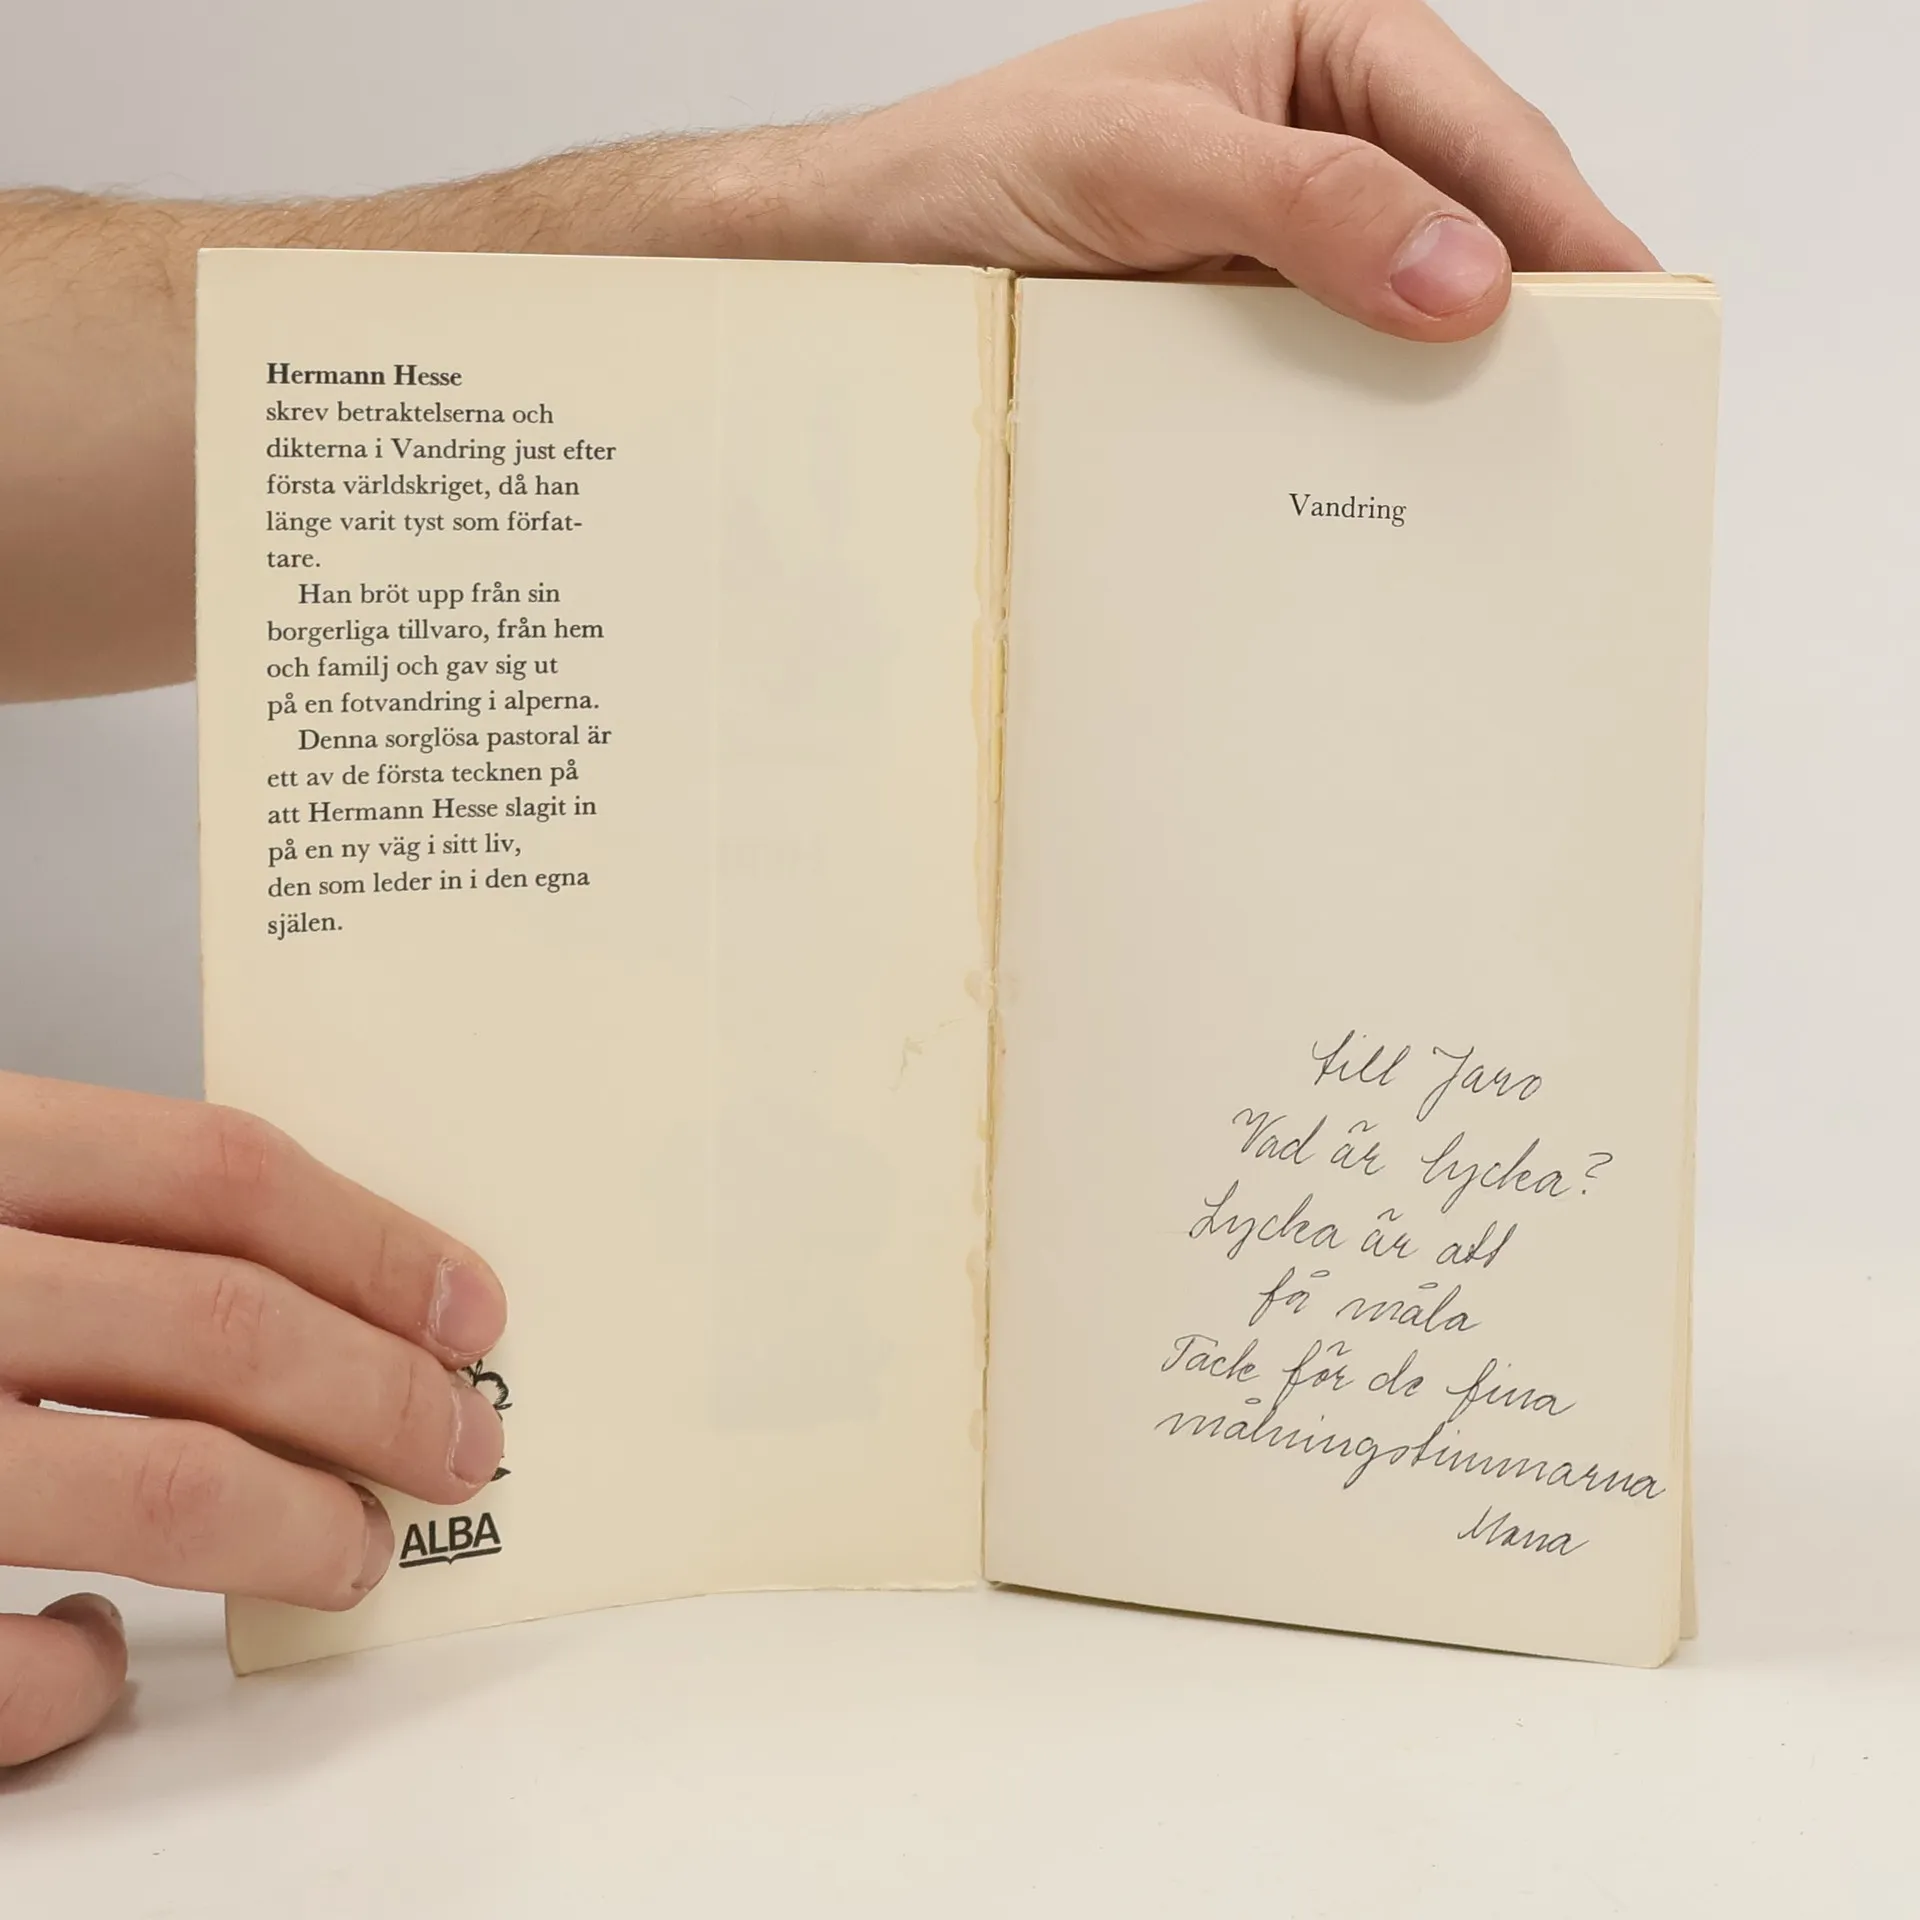 Hermann Hesse
skrev betraktelserna och
dikterna i Vandring just efter
första världskriget, då han
länge varit tyst som förfat-
tare.
Han bröt upp från sin
borgerliga tillvaro, från hem
och familj och gav sig ut
på en fotvandring i alperna.
Denna sorglösa pastoral är
ett av de första tecknen på
att Hermann Hesse slagit in
på en ny väg i sitt liv,
den som leder in i den egna
själen.
ALBA
Vandring
till Jaro
Vad är lycka?
Lycka är att
få måla
Tack för de fina
målningstimmarna
Mona